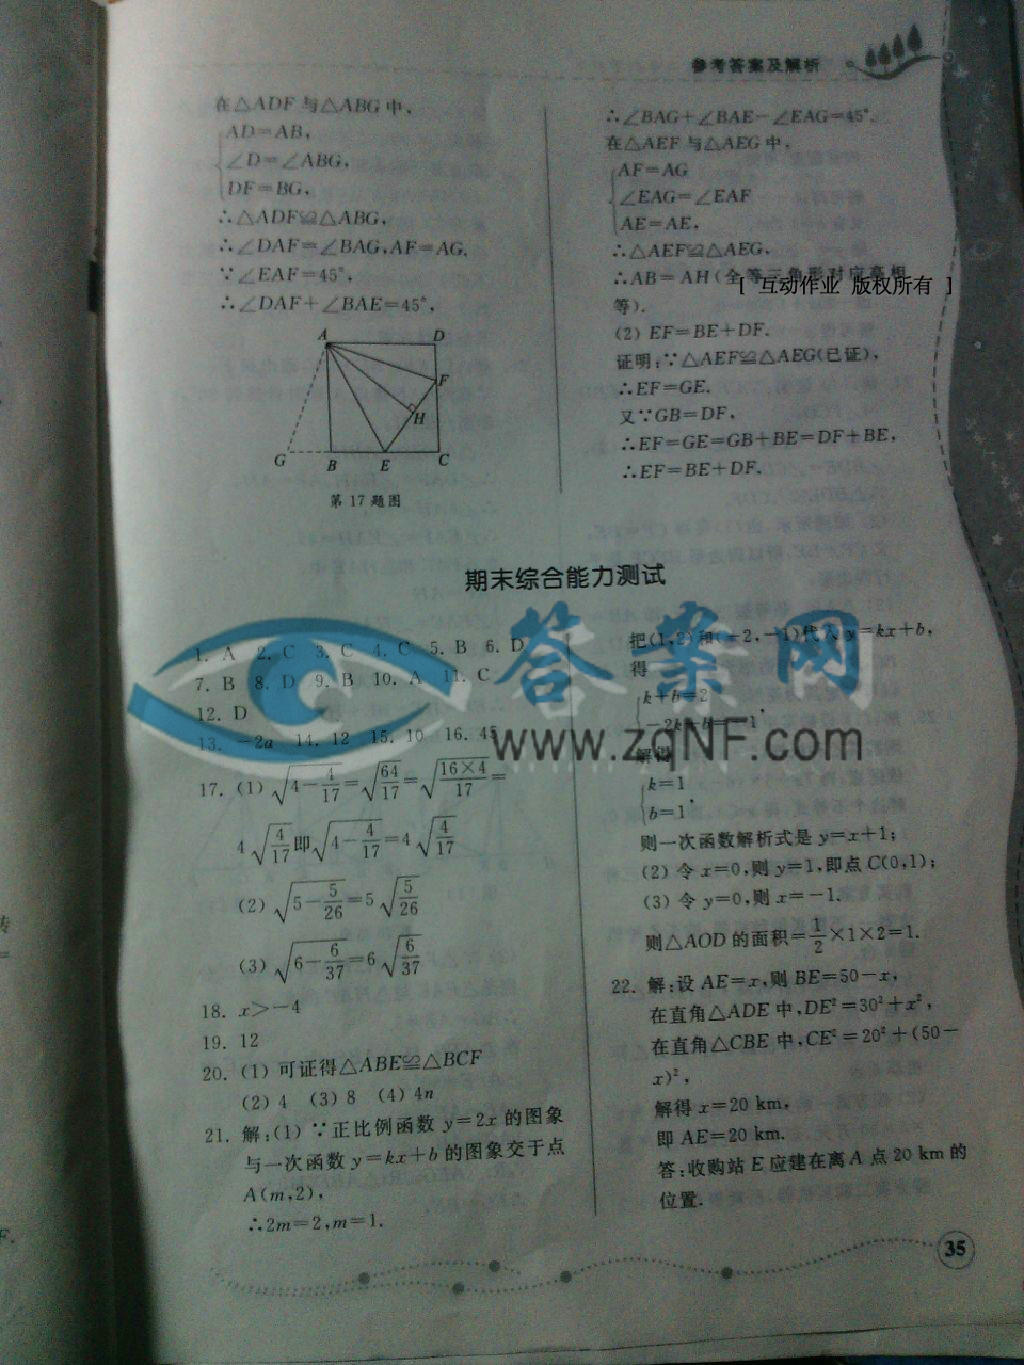 参考答案及解析
在△ADF与△ABG中,
AD=AB,
∠D=∠ABG,
DF=BG,
∴△ADF≌△ABG,
∴∠DAF=∠BAG,AF=AG,
∵∠EAF=45°,
∴∠DAF+∠BAE=45°,
A D
F
H
G B E C
第17题图
∴∠BAG+∠BAE=∠EAG=45°,
在△AEF与△AEG中,
AF=AG
∠EAG=∠EAF
AE=AE,
∴△AEF≌△AEG,
∴AB=AH(全等三角形对应高相
等).
[ 互动作业 版权所有 ]
(2) EF=BE+DF.
证明:∵△AEF≌△AEG(已证),
∴EF=GE,
又∵GB=DF,
∴EF=GE=GB+BE=DF+BE,
∴EF=BE+DF.
期末综合能力测试
1. A 2. C 3. C 4. C 5. B 6. D
7. B 8. D 9. B 10. A 11. C
12. D
13. −2a 14. 12 15. 10 16. 45
17. (1) √(4−4/17)=√(64/17)=√(16×4/17)=
4√(4/17)即√(4−4/17)=4√(4/17)
(2) √(5−5/26)=5√(5/26)
(3) √(6−6/37)=6√(6/37)
18. x>−4
19. 12
20. (1) 可证得△ABE≌△BCF
(2) 4 (3) 8 (4) 4n
21. 解:(1) ∵正比例函数 y=2x 的图象
与一次函数 y=kx+b 的图象交于点
A(m,2),
∴2m=2,m=1.
把(1,2)和(−2,−1)代入 y=kx+b,
得
k+b=2
−2k+b=−1,
解得
k=1
b=1,
则一次函数解析式是 y=x+1;
(2) 令 x=0,则 y=1,即点 C(0,1);
(3) 令 y=0,则 x=−1.
则△AOD 的面积=1/2×1×2=1.
22. 解:设 AE=x,则 BE=50−x,
在直角△ADE 中,DE²=30²+x²,
在直角△CBE 中,CE²=20²+(50−
x)²,
解得 x=20 km,
即 AE=20 km.
答:收购站 E 应建在离 A 点 20 km 的
位置.
35
答案网
www.zqNF.com